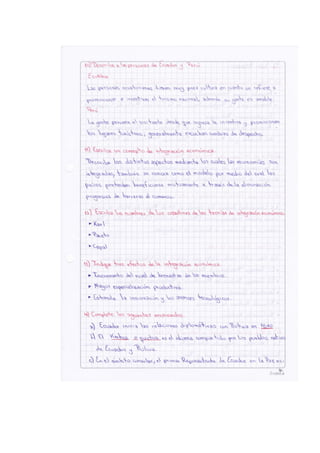 10) Describa a las personas de Ecuador y Perú
Ecuador
Las personas ecuatorianas tienen muy poca cultura en cuanto se refiere a
promocionar e incentivar el turismo nacional, además su gente es amable.
Perú
La gente peruana al contrario desde que ingresa le incentiva y promocionan
los lugares turísticos, generalmente escuchan cumbias de despecho.
11) Escriba un concepto de integración económica.
Describe los distintos aspectos mediante los cuales las economías son
integradas, también se conoce como el modelo por medio del cual los
países pretenden beneficiarse mutuamente a través de la eliminación
progresiva de barreras al comercio.
12) Escriba los nombres de los creadores de las teorías de integración económica.
▸ Karl
▸
▸
13) Indique tres efectos de la integración económica.
▸ Incremento del nivel de bienestar de los miembros.
▸ Mayor especialización productiva.
▸ Estimula la innovación y los avances tecnológicos.
14) Complete los siguientes enunciados.
a) Ecuador inicia las relaciones diplomáticas con Bolivia en
b) El es el idioma compartido por los pueblos nativos
de Ecuador y Bolivia.
c) En el ámbito consular, el primer Representante de Ecuador en la Paz es: